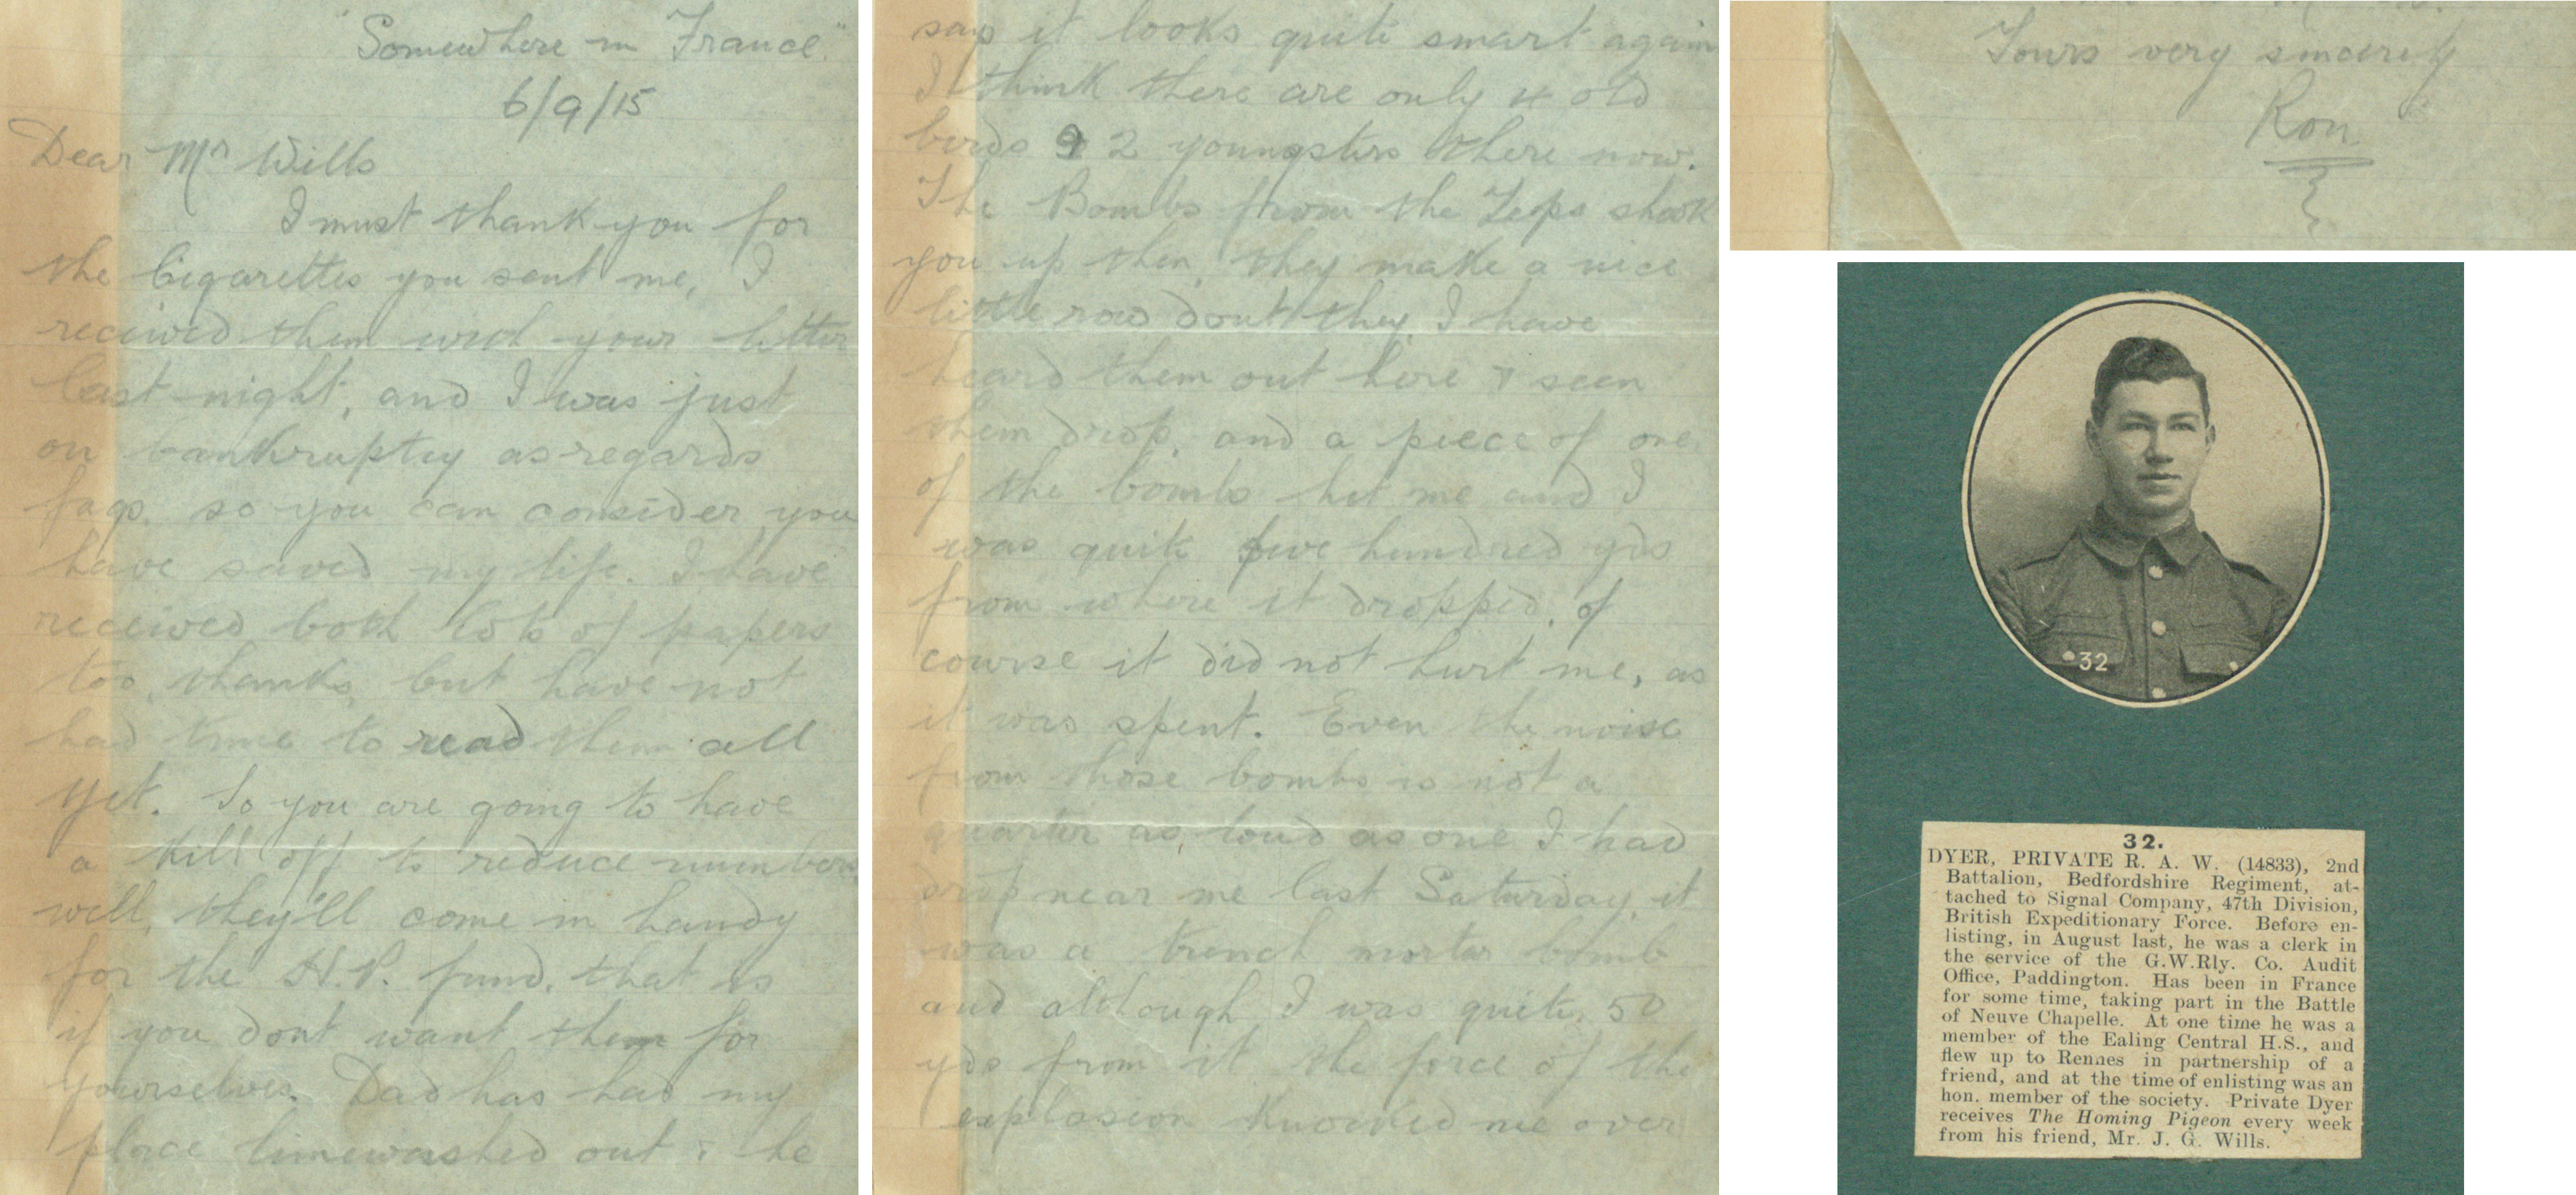 "Somewhere in France"
6/9/15
Dear Mr Wills
I must thank you for
the Cigarettes you sent me, I
received them with your letter
last night, and I was just
on bankruptcy as regards
fags, so you can consider you
have saved my life. I have
received both lots of papers
too, thanks, but have not
had time to read them all
yet. So you are going to have
a kill off to reduce numbers
well, they'll come in handy
for the H.P. fund, that is
if you dont want them for
yourselves. Dad has had my
place limewashed out & he
says it looks quite smart again
I think there are only 4 old
birds & 2 youngsters there now.
The Bombs from the Zeps shook
you up then, they make a nice
little row dont they I have
heard them out here & seen
them drop, and a piece of one
of the bombs hit me and I
was quite five hundred yds
from where it dropped, of
course it did not hurt me, as
it was spent. Even the noise
from those bombs is not a
quarter as loud as one I had
drop near me last Saturday, it
was a trench mortar bomb
and although I was quite 50
yds from it the force of the
explosion knocked me over
Yours very sincerely
Ron
32
32.
DYER, PRIVATE R. A. W. (14833), 2nd
Battalion, Bedfordshire Regiment, at-
tached to Signal Company, 47th Division,
British Expeditionary Force. Before en-
listing, in August last, he was a clerk in
the service of the G.W.Rly. Co. Audit
Office, Paddington. Has been in France
for some time, taking part in the Battle
of Neuve Chapelle. At one time he was a
member of the Ealing Central H.S., and
flew up to Rennes in partnership of a
friend, and at the time of enlisting was an
hon. member of the society. Private Dyer
receives The Homing Pigeon every week
from his friend, Mr. J. G. Wills.